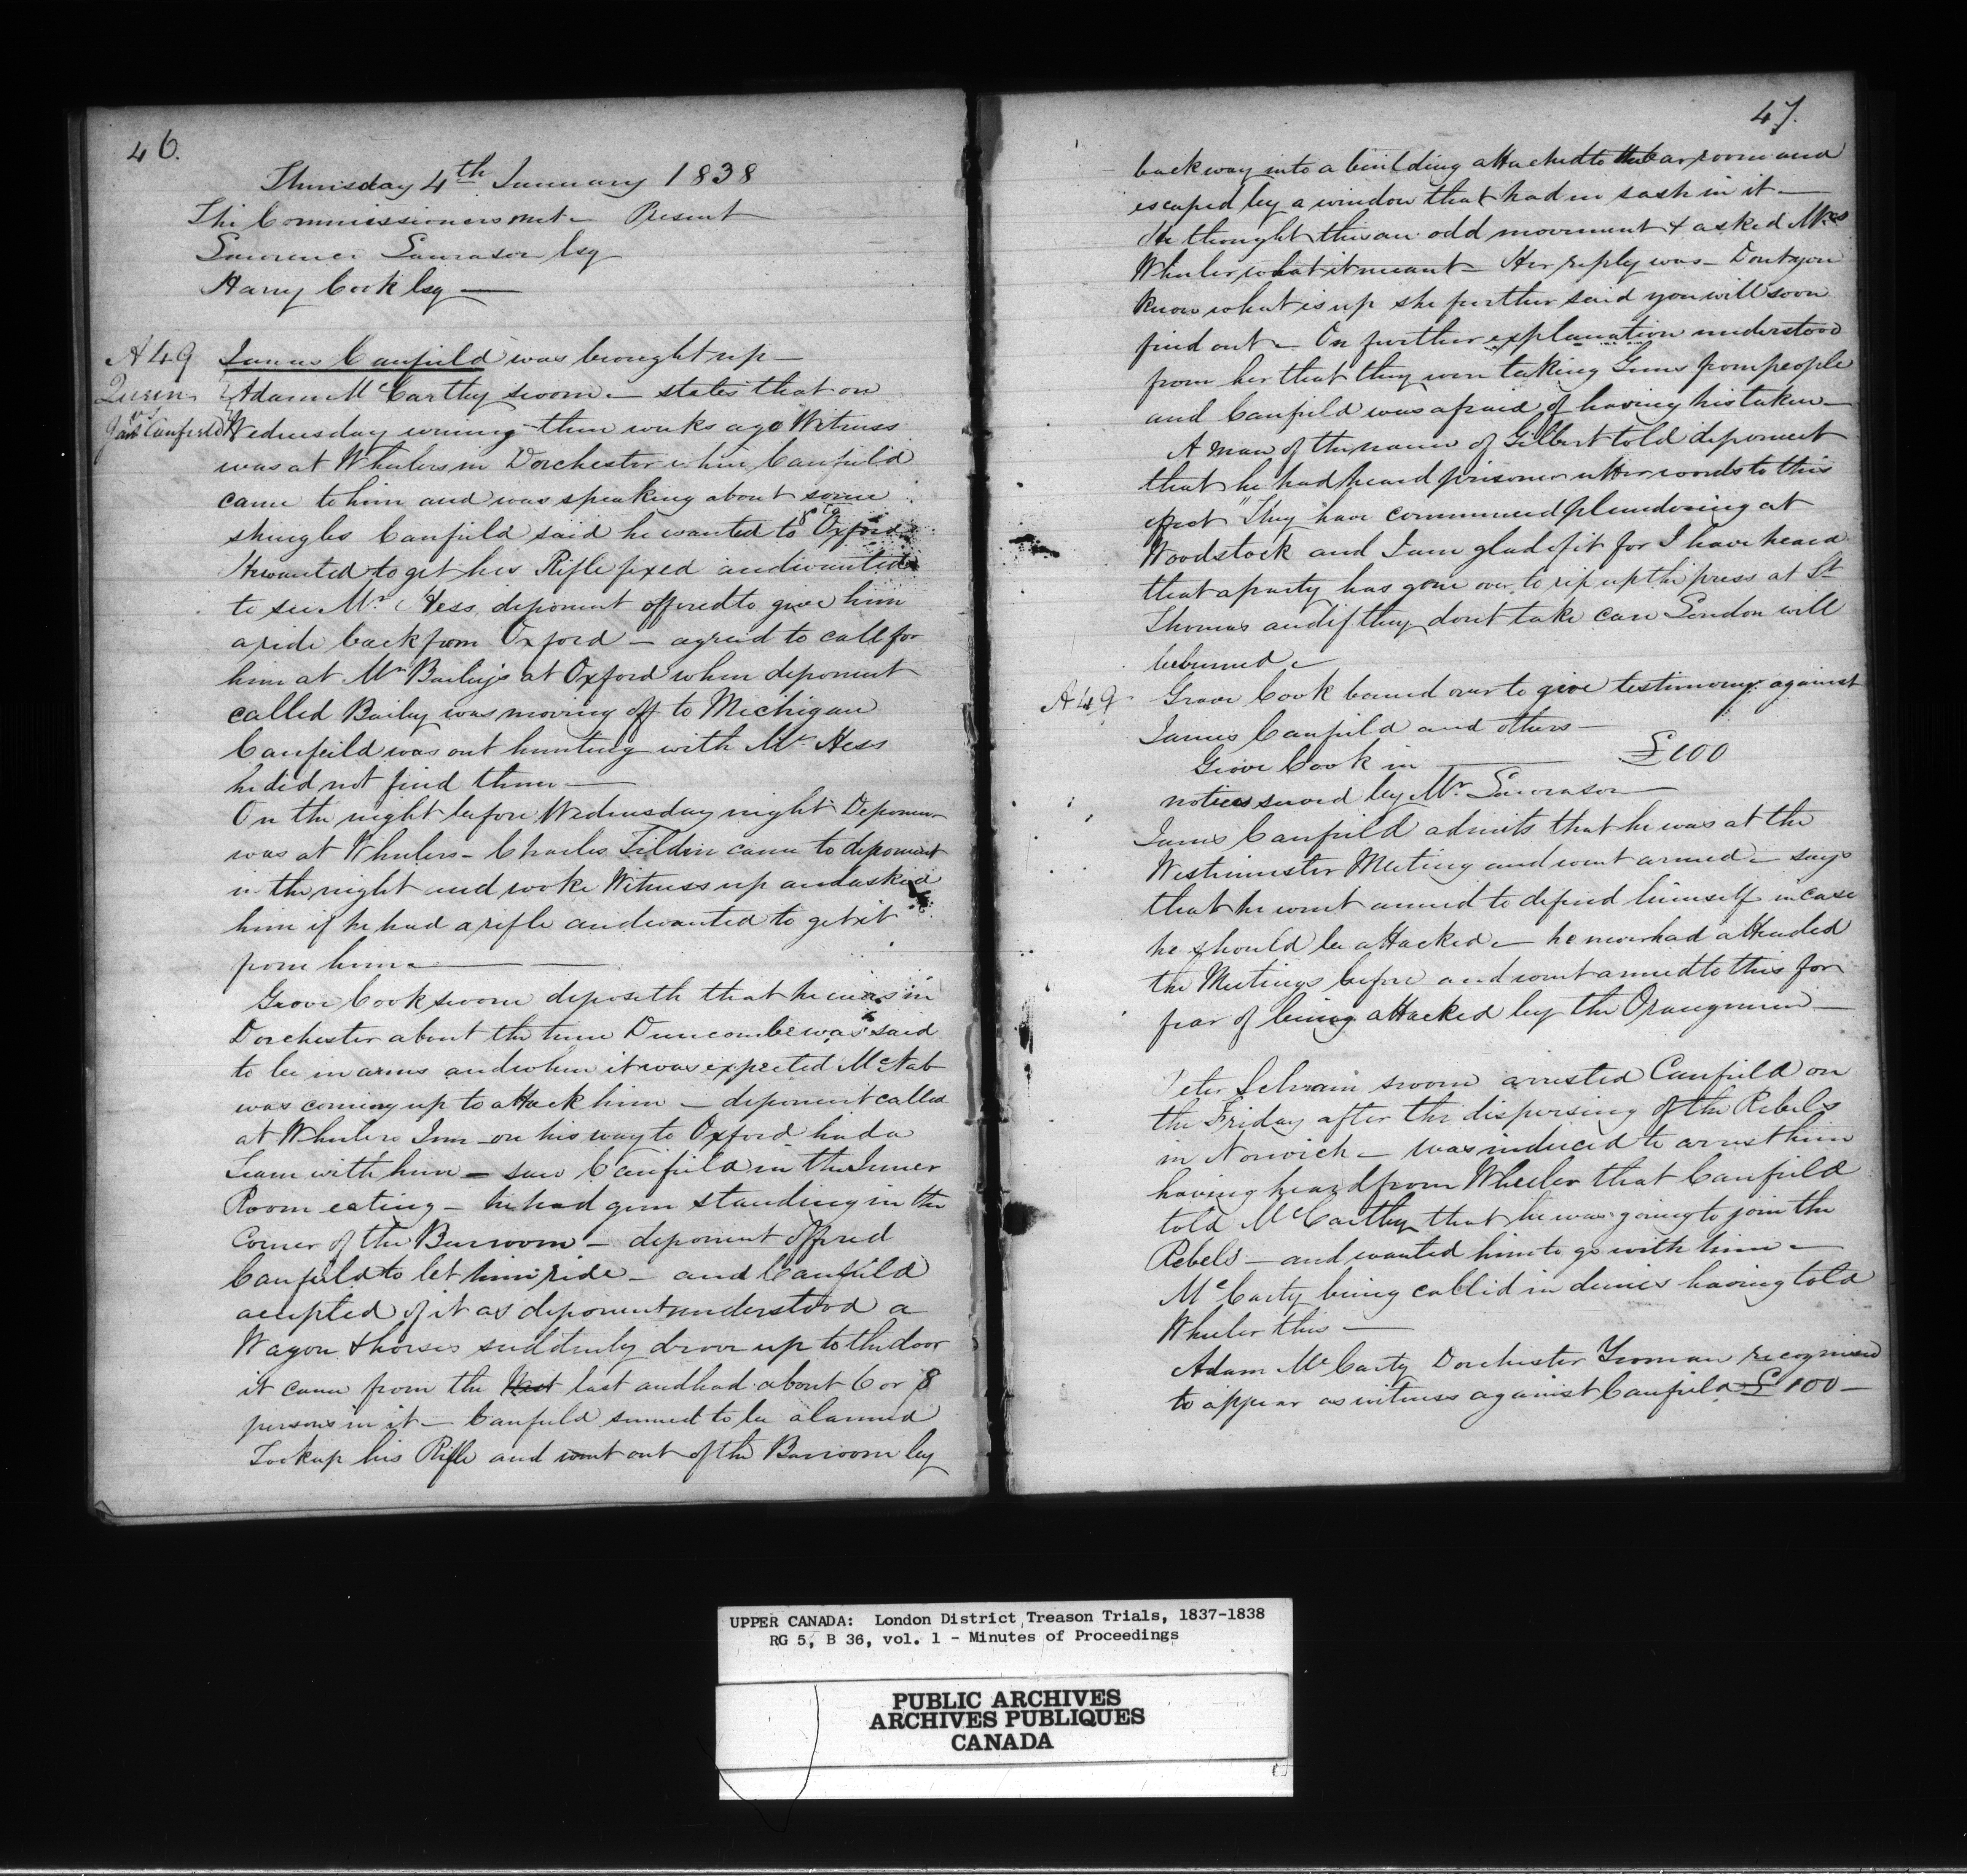 46.
Thursday 4th January 1838
The Commissioners met - Present
Lawrence Lawrason Esq
Harry Cook Esq
A 49 James Canfield was brought up -
Queen Adam McCarthy sworn - states that on
vs
Jas Canfield Wednesday evening three weeks ago Witness
was at Wheelers in Dorchester where Canfield
came to him and was speaking about some
shingles Canfield said he wanted to go to Oxford
He wanted to get his Rifle fixed and wanted
to see Mr Hess, deponent offered to give him
a ride back from Oxford - agreed to call for
him at Mr Bailey's at Oxford when deponent
called Bailey was moving off to Michigan
Canfeild was out hunting with Mr Hess
he did not find them -
On the night before Wednesday night Deponent
was at Wheelers - Charles Tilden came to deponent
in the night and woke Witness up and asked
him if he had a rifle and wanted to get it
from him -
Grove Cook sworn deposeth that he was in
Dorchester about the time Duncombe was said
to be in arms and when it was expected McNab
was coming up to attack him - deponent called
at Wheelers Inn on his way to Oxford had a
Team with him - saw Canfield in the Inner
Room eating - he had gun standing in the
Corner of the Barroom - deponent offered
Canfield to let him ride - and Canfield
accepted of it as deponent understood a
Wagon & horses suddenly drove up to the door
it came from the last and had about 6 or 8
persons in it - Canfield seemed to be alarmed
Took up his Rifle and went out of the Barroom by
47.
back way into a building attached to the barroom and
escaped by a window that had no sash in it -
He thought this an odd movement & asked Mrs
Wheeler what it meant - Her reply was - Dont you
know what is up she further said you will soon
find out - On further explanation understood
from her that they were taking Guns from people
and Canfield was afraid of having his taken -
A man of the name of Gilbert told deponent
that he had heard prisoner utter words to this
effect "They have commenced plundering at
Woodstock and I am glad of it for I have heard
that a party has gone over to rip up the press at St
Thomas and if they dont take care London will
be burned -
A 49 Grove Cook bound over to give testimony against
James Canfield and others -
Grove Cook in £100
notices served by Mr Lawrason
James Canfield admits that he was at the
Westminster Meeting and went armed - says
that he went armed to defend himself in case
he should be attacked - he never had attended
the Meetings before and went armed to this for
fear of being attacked by the Orangemen -
Peter Schram sworn arrested Canfield on
the Friday after the dispersing of the Rebels
in Norwich - was induced to arrest him
having heard from Wheeler that Canfield
told McCarthy that he was going to join the
Rebels - and wanted him to go with him -
McCarty being called in denies having told
Wheeler this -
Adam McCarty Dorchester Yeoman recognised
to appear as witness against Canfield £100 -
UPPER CANADA: London District Treason Trials, 1837-1838
RG 5, B 36, vol. 1 - Minutes of Proceedings
PUBLIC ARCHIVES
ARCHIVES PUBLIQUES
CANADA